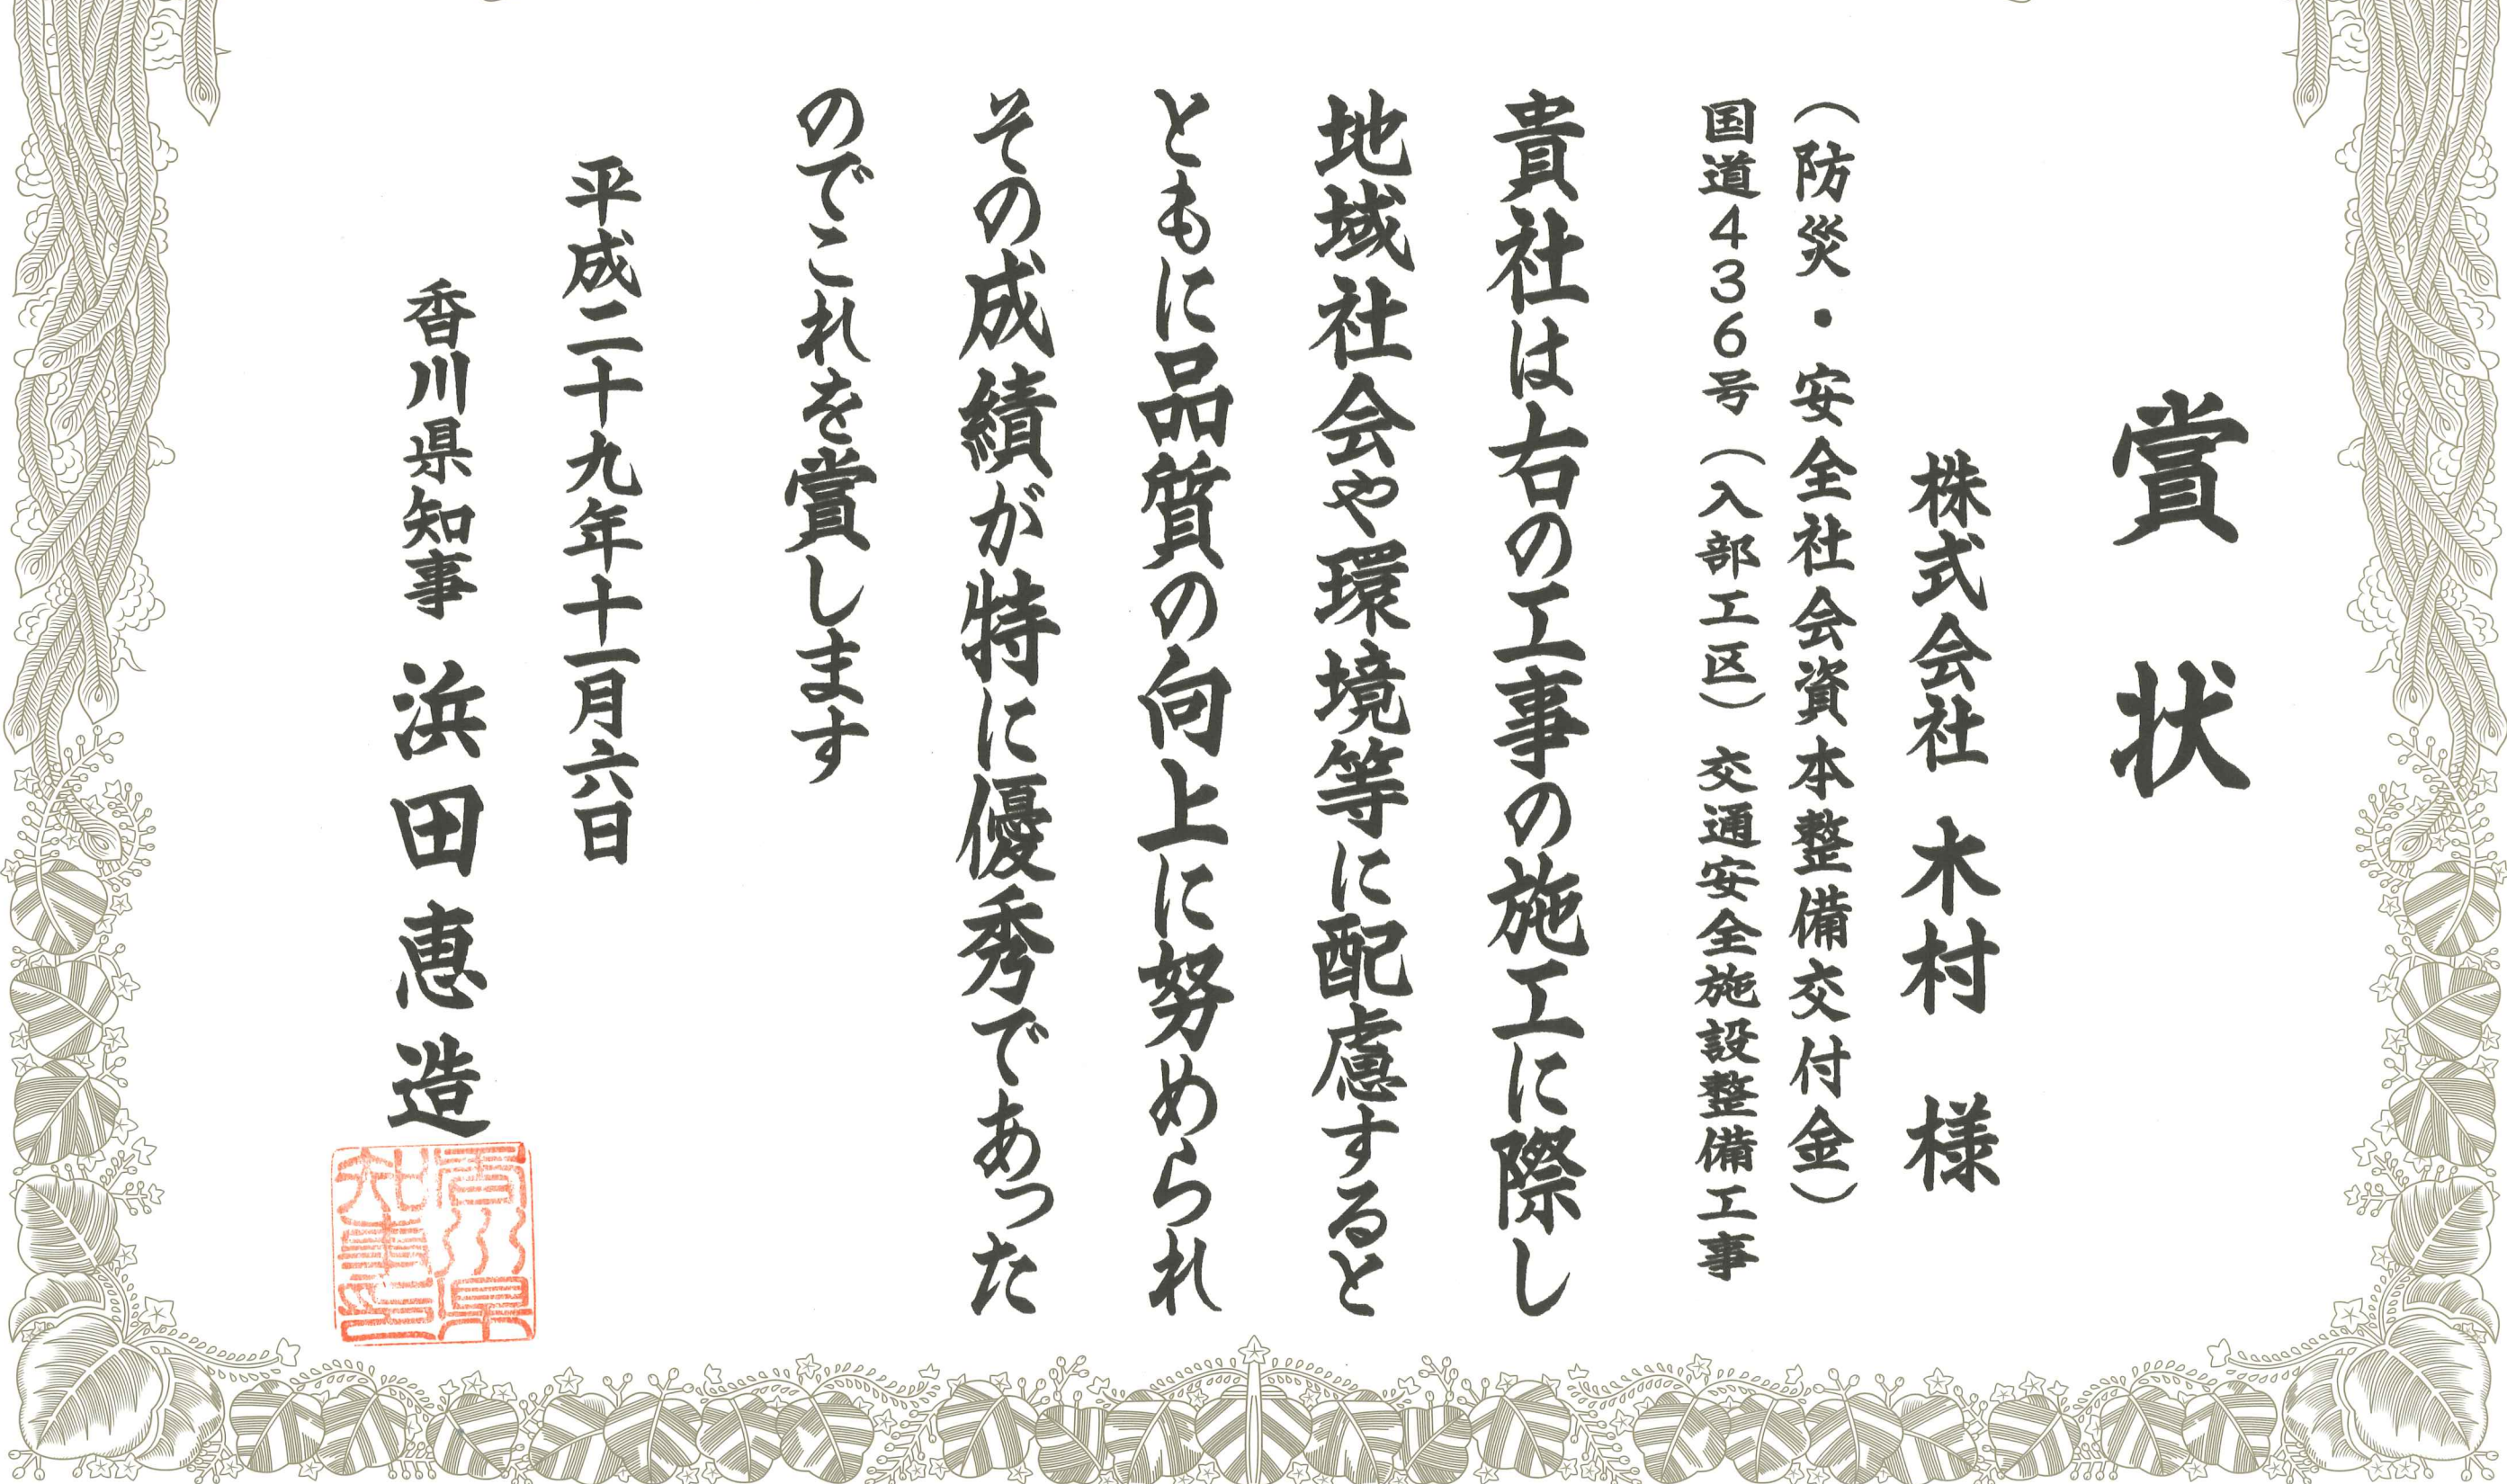 賞状
株式会社 木村 様
（防災・安全社会資本整備交付金）
国道４３６号（入部工区）交通安全施設整備工事
貴社は右の工事の施工に際し
地域社会や環境等に配慮すると
ともに品質の向上に努められ
その成績が特に優秀であった
のでこれを賞します
平成二十九年十一月六日
香川県知事 浜田恵造
香川県
知事之印